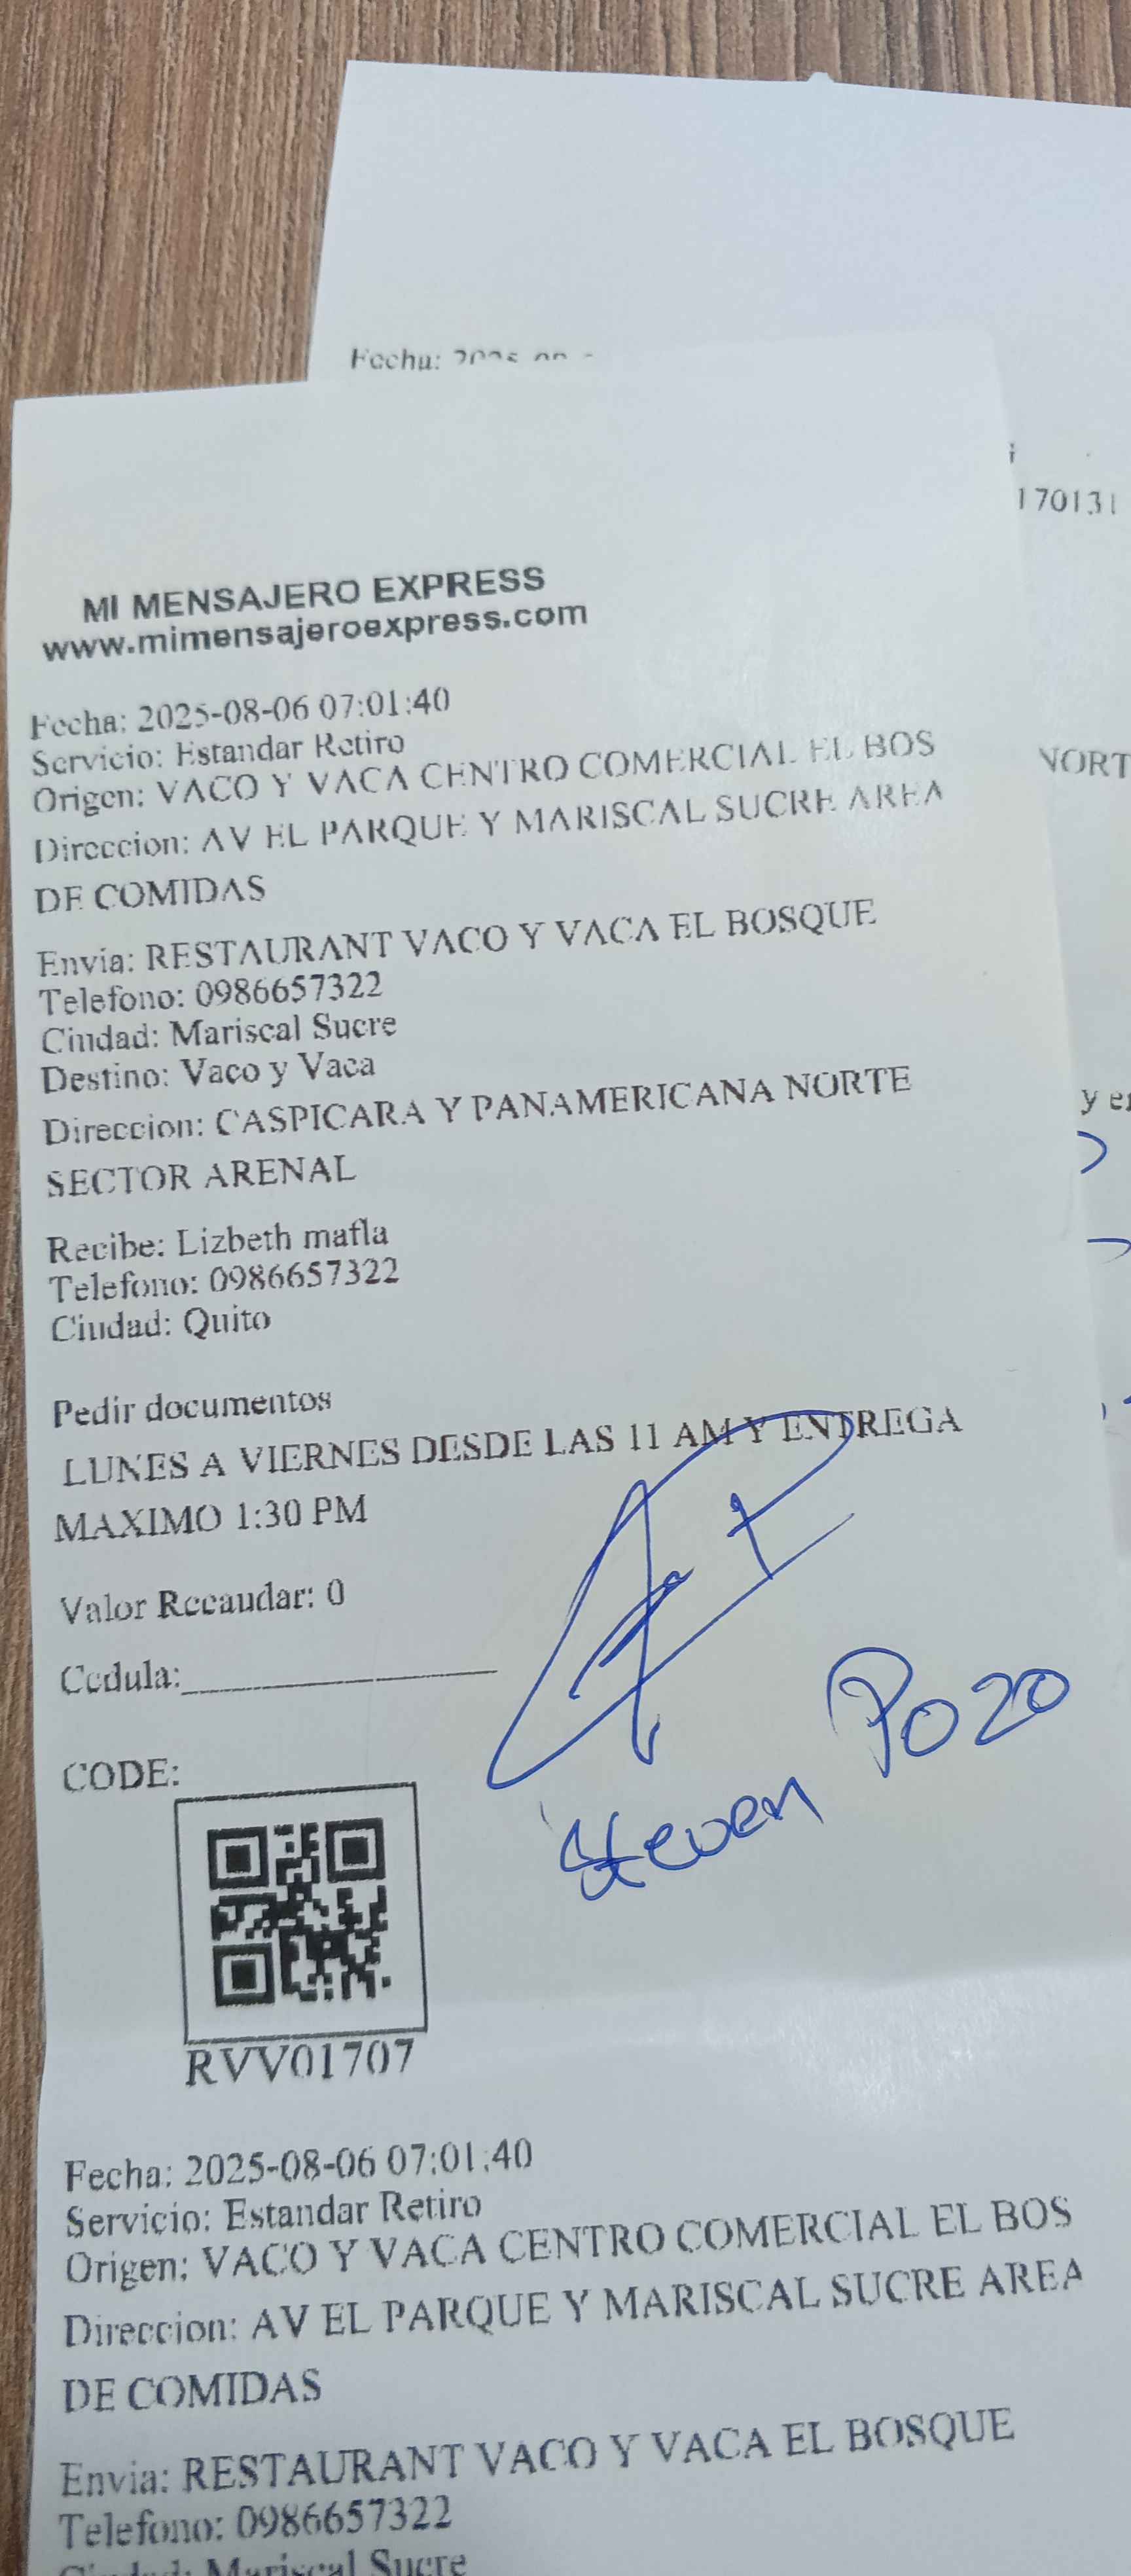 Fecha: 2025
170131
NORT
MI MENSAJERO EXPRESS
www.mimensajeroexpress.com
Fecha: 2025-08-06 07:01:40
Servicio: Estandar Retiro
Origen: VACO Y VACA CENTRO COMERCIAL EL BOS
Direccion: AV EL PARQUE Y MARISCAL SUCRE AREA
DE COMIDAS
Envia: RESTAURANT VACO Y VACA EL BOSQUE
Telefono: 0986657322
Ciudad: Mariscal Sucre
Destino: Vaco y Vaca
Direccion: CASPICARA Y PANAMERICANA NORTE
SECTOR ARENAL
Recibe: Lizbeth mafla
Telefono: 0986657322
Ciudad: Quito
Pedir documentos
LUNES A VIERNES DESDE LAS 11 AM Y ENTREGA
MAXIMO 1:30 PM
Valor Recaudar: 0
Cedula:
Steven Pozo
CODE:
RVV01707
Fecha: 2025-08-06 07:01:40
Servicio: Estandar Retiro
Origen: VACO Y VACA CENTRO COMERCIAL EL BOS
Direccion: AV EL PARQUE Y MARISCAL SUCRE AREA
DE COMIDAS
Envia: RESTAURANT VACO Y VACA EL BOSQUE
Telefono: 0986657322
Ciudad: Mariscal Sucre